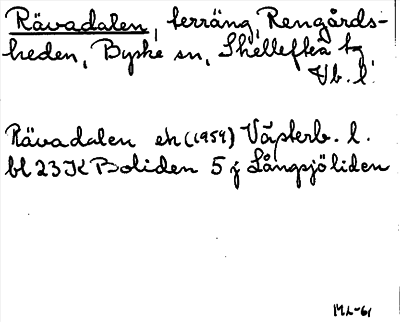 Rävadalen, terräng, Rengårds-
heden, Byske sn, Skellefteå tg
Vb. l.
Rävadalen ek (1959) Västerb. l.
bl 23 K Boliden 5 j Långsjöliden
ML-61